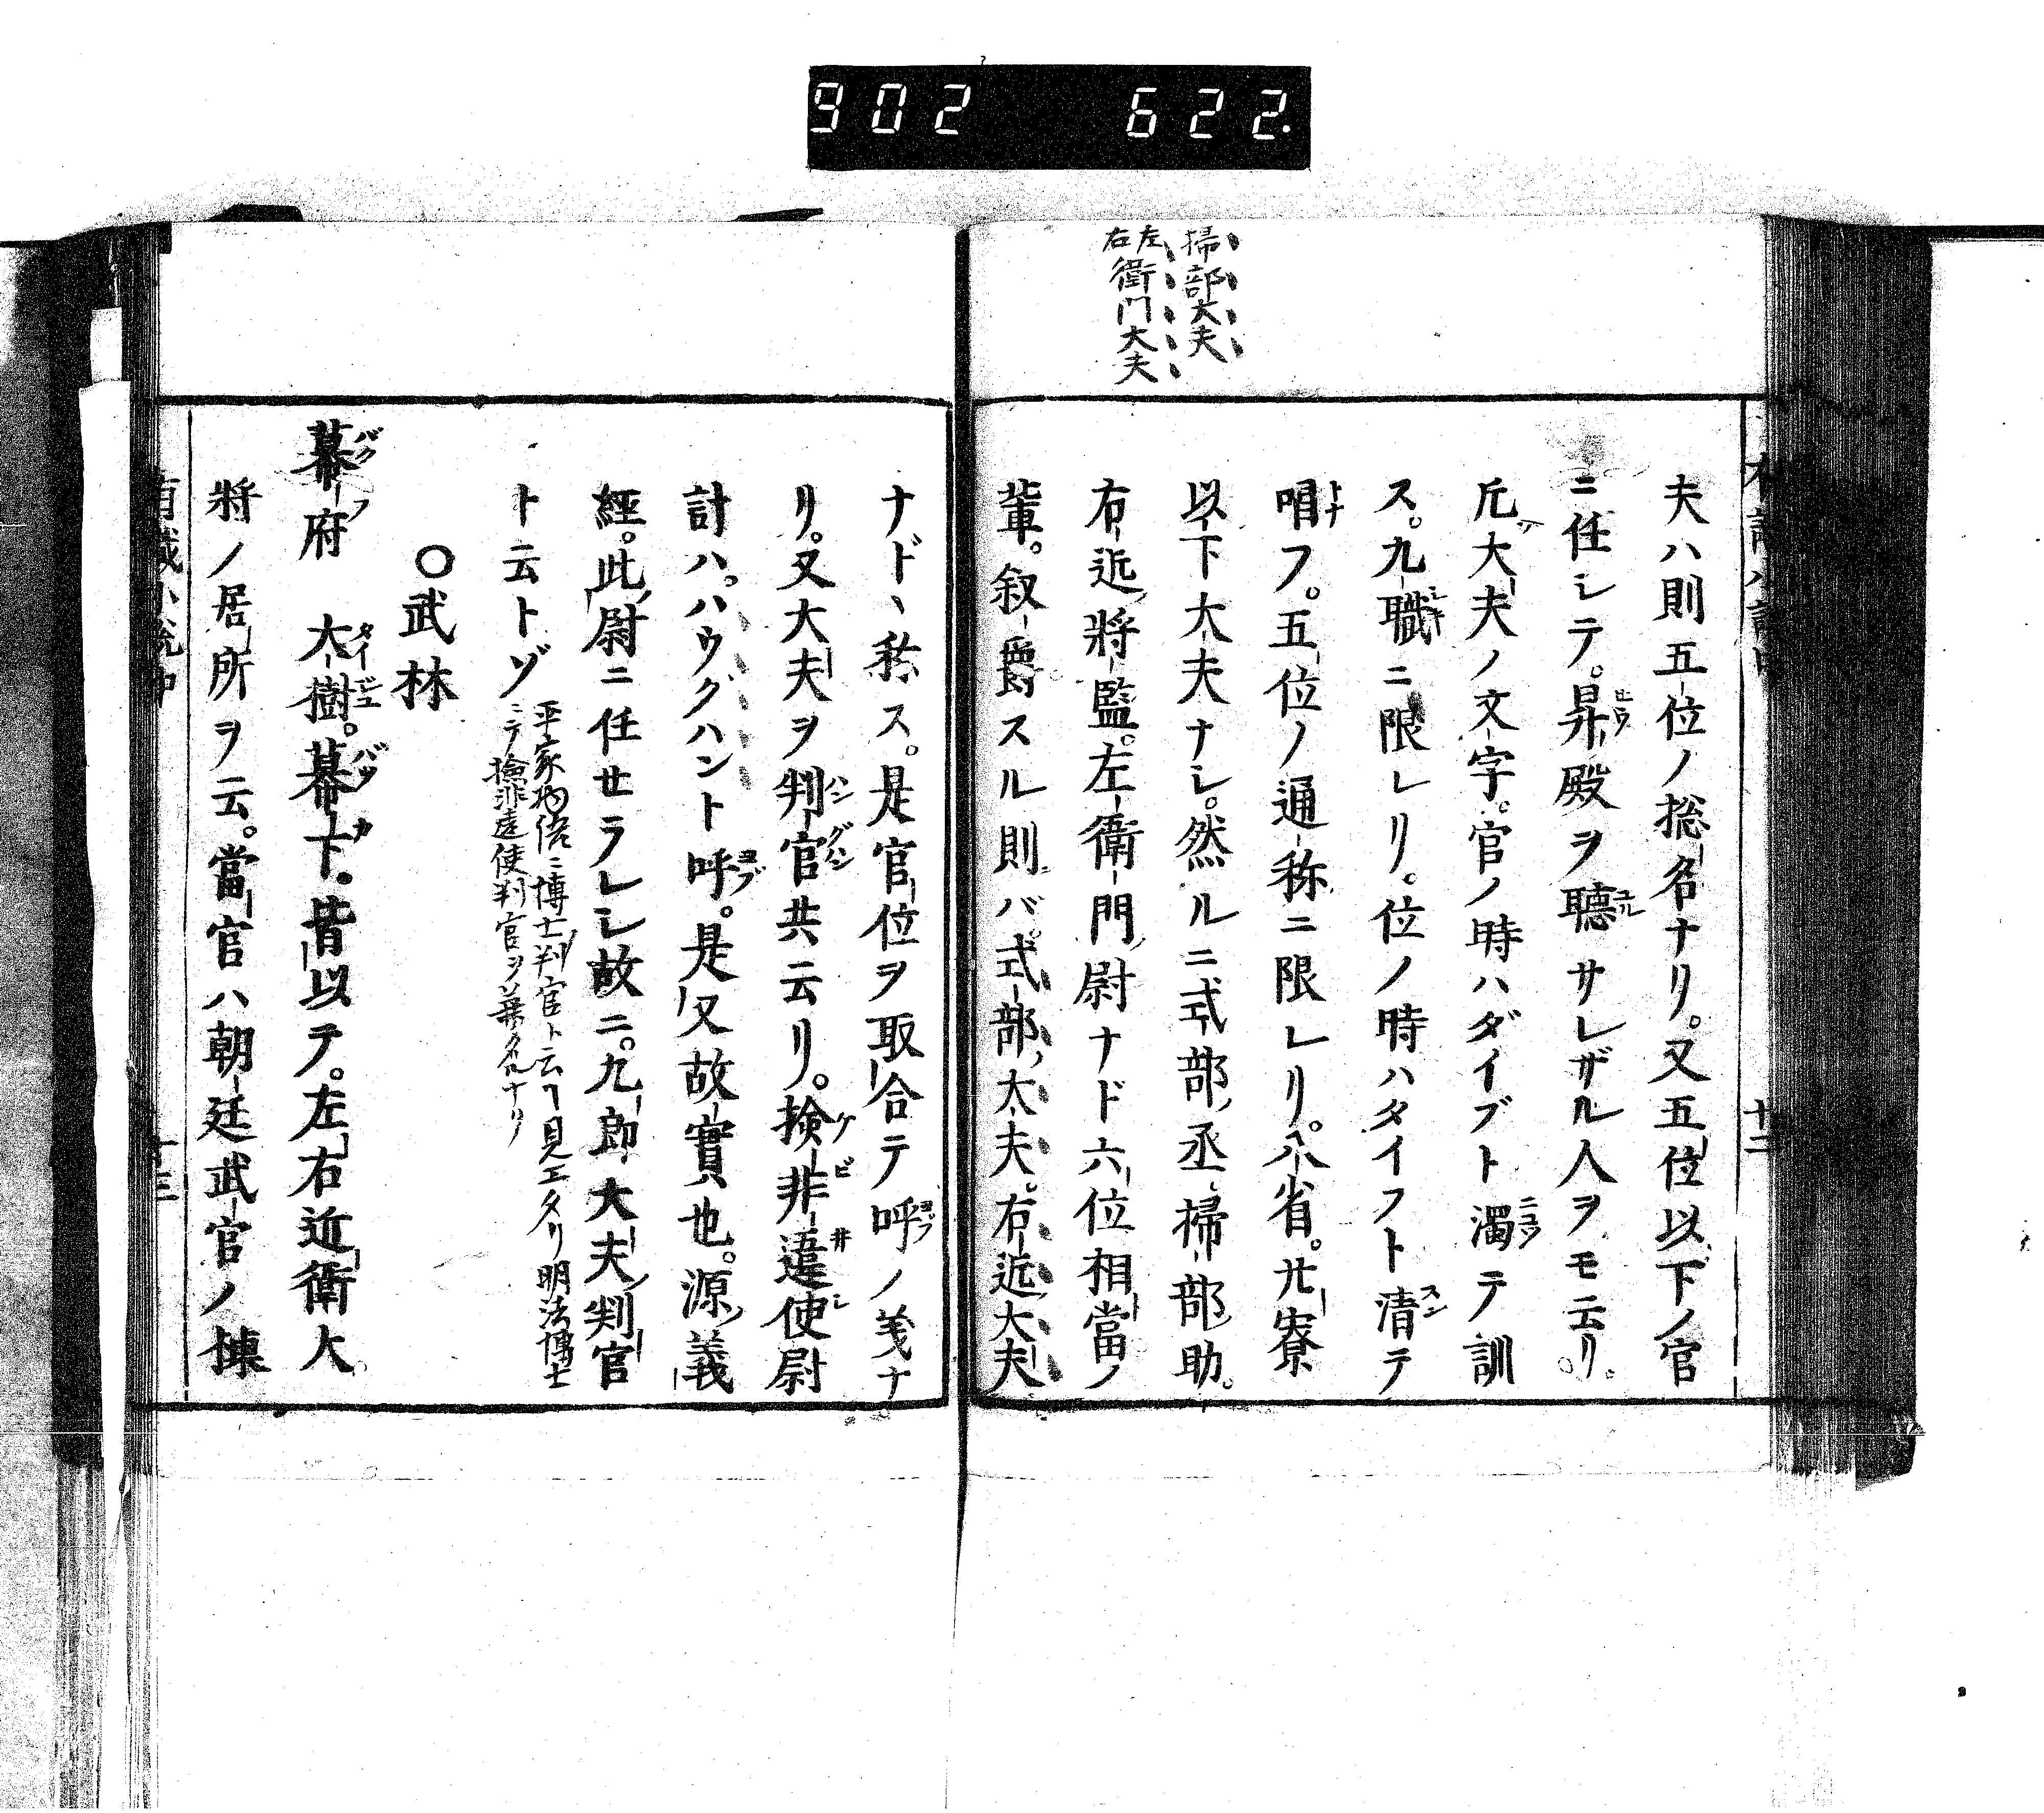 902 622.
掃部大夫
左右衛門大夫
夫ハ則五位ノ総名ナリ。又五位以下ノ官
ニ任シテ。昇殿ヲ聴サレザル人ヲモ云リ。
凡大夫ノ文字。官ノ時ハダイブト濁テ訓
ス。九職ニ限レリ。位ノ時ハタイフト清テ
唱フ。五位ノ通称ニ限レリ。八省。
以下大夫ナシ。然ルニ式部丞掃部助。
右近將監。左衛門尉ナド六位相當ノ
輩。叙爵スル則バ。式部大夫。右近大夫
ナド、称ス。是官位ヲ取合テ呼ノ義ナ
リ。又大夫ヲ判官共云リ。検非違使尉
計ハ。ハウグハント呼。是又故實也。源義
經。此尉ニ任セラレシ故ニ。九郎大夫判官
ト云トゾ
平家物語ニ博士判官ト云ヿ見エタリ明法博士
ニテ検非違使判官ヲ兼タルナリ
○武林
幕府　大樹。幕下。皆以テ。左右近衛大
將ノ居所ヲ云。當官ハ朝廷武官ノ棟
十二
十三